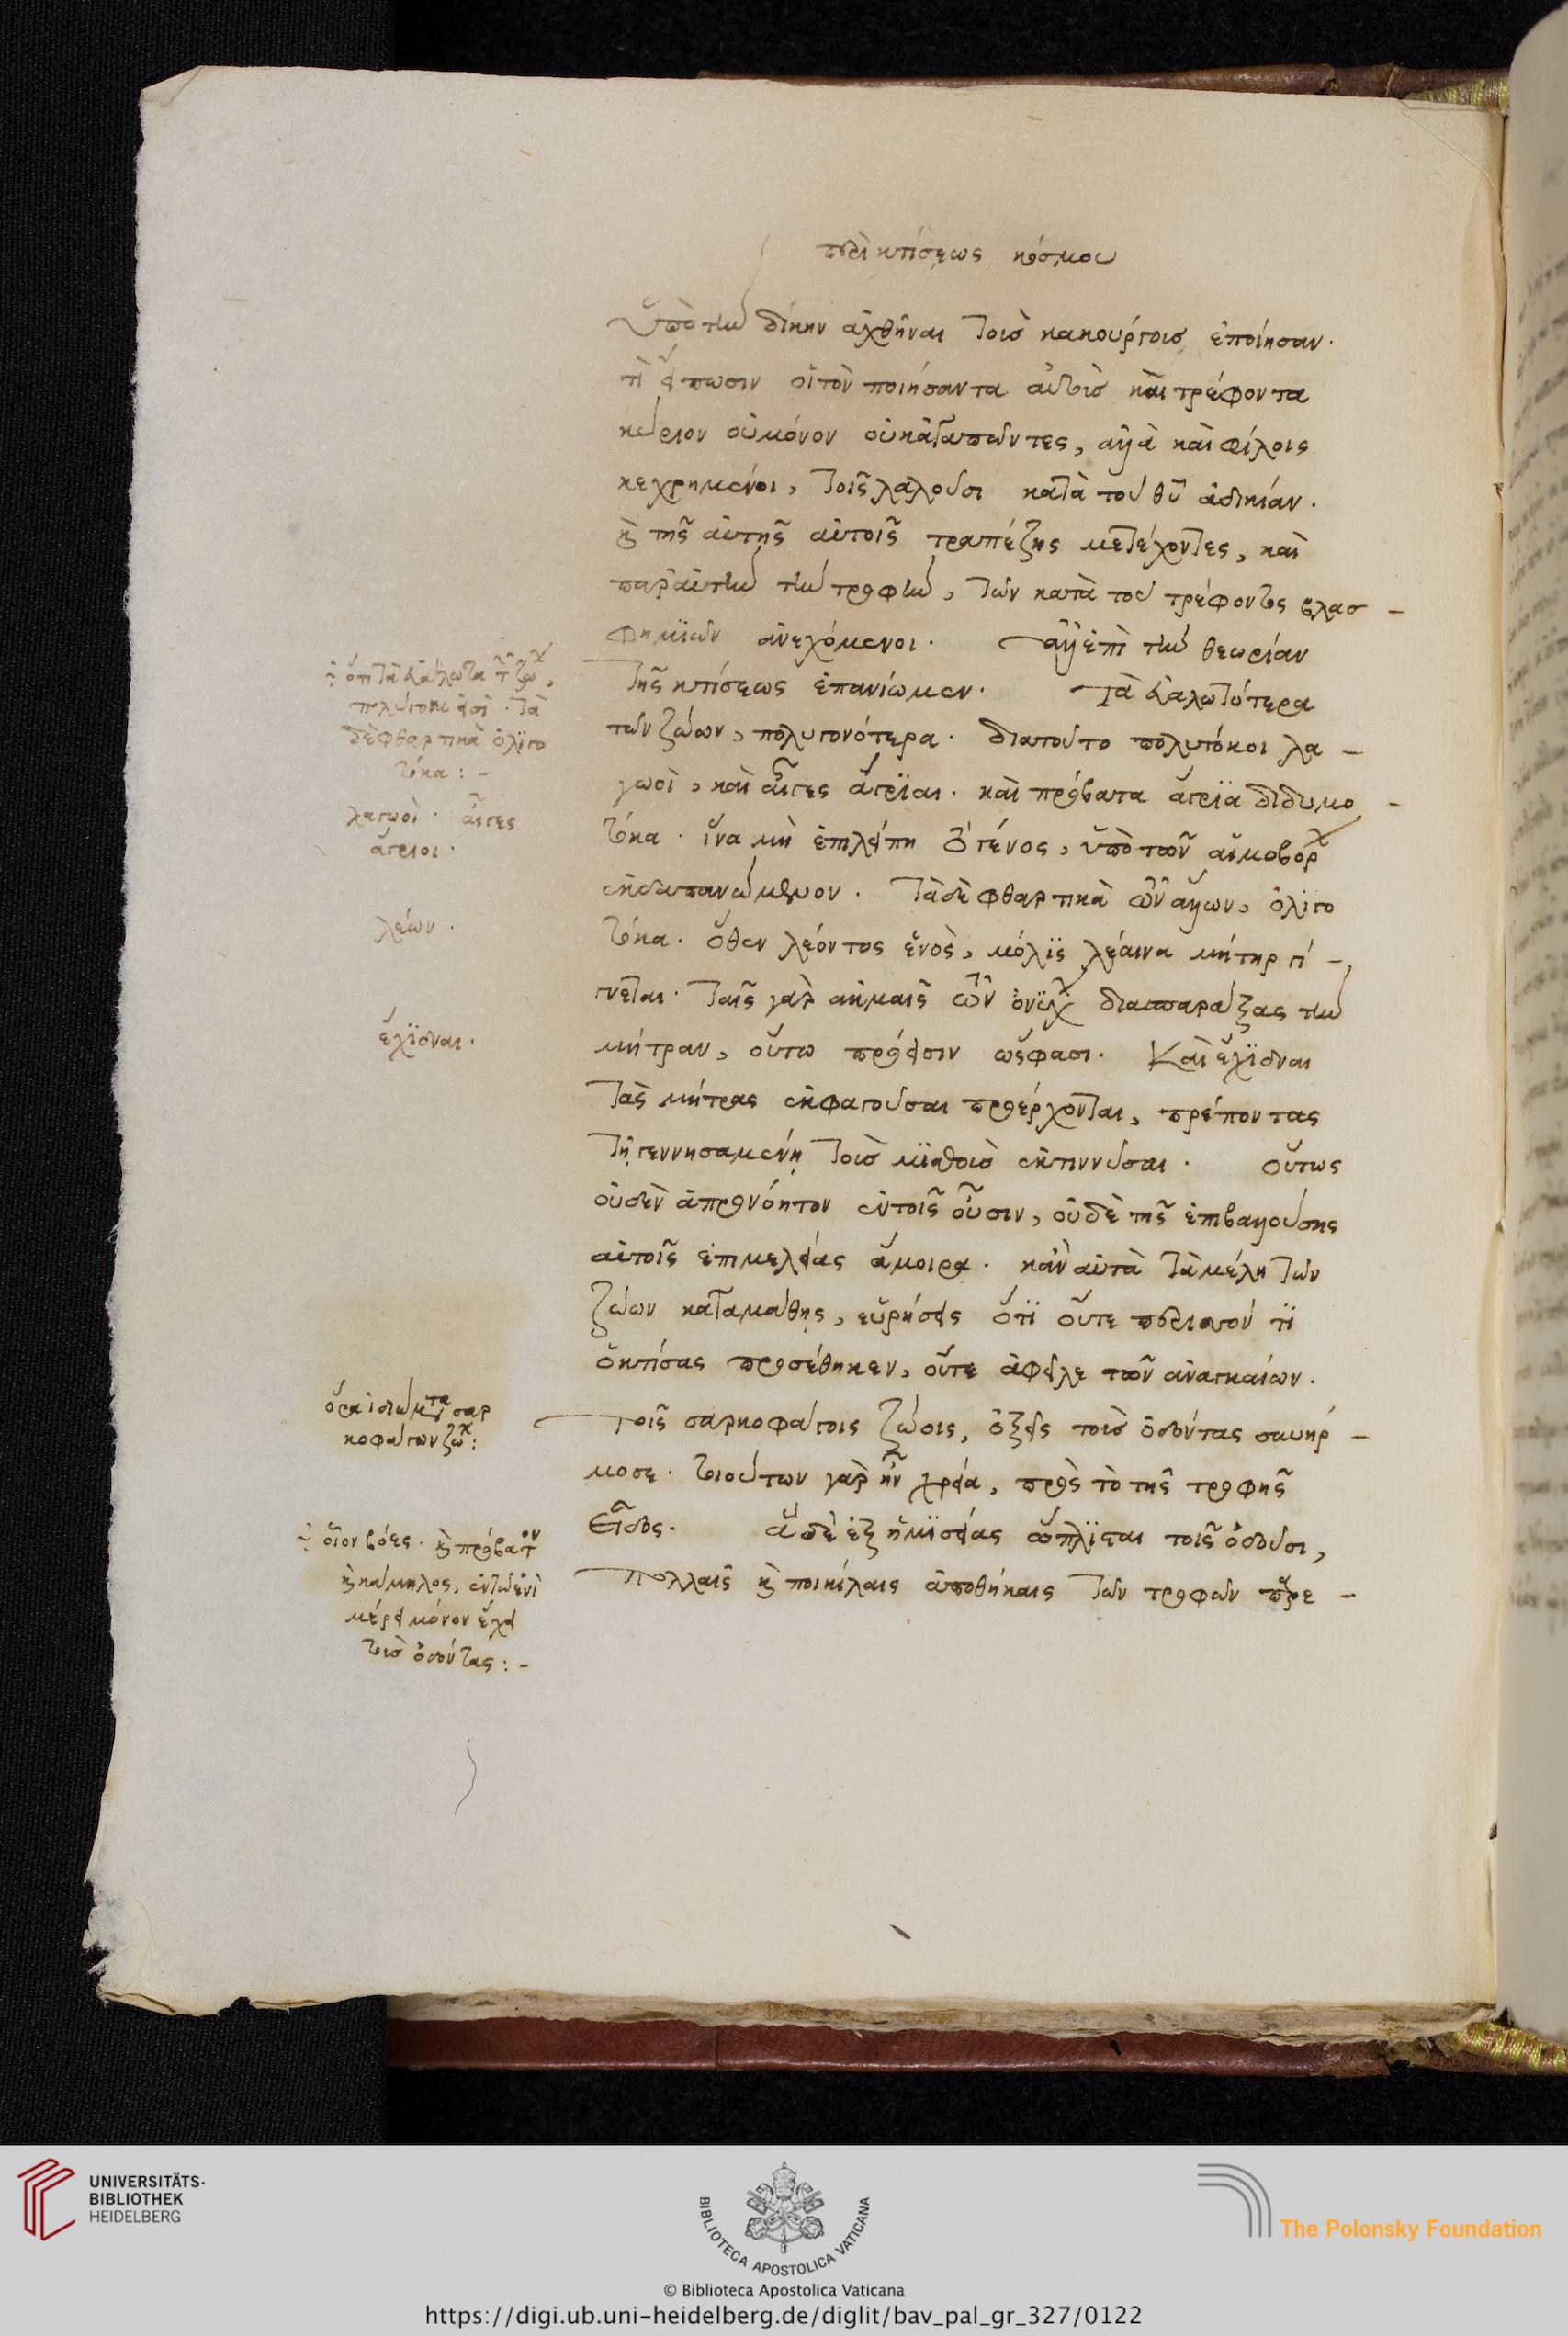 περὶ κτίσεως κόσμου
ὑπὸ τὴν δίκην ἀχθῆναι τοὺς κακούργους ἐποίησαν.
τί εἴπωσιν οἱ τὸν ποιήσαντα αὐτοὺς καὶ τρέφοντα
κύριον οὐ μόνον οὐκ ἀγαπῶντες, ἀλλὰ καὶ φίλοις
κεχρημένοι, τοῖς λαλοῦσι κατὰ τοῦ θυ ἀδικίαν.
καὶ τῆς αὐτῆς αὐτοῖς τραπέζης μετέχοντες, καὶ
παρ' αὐτὴν τὴν τροφὴν, τῶν κατὰ τοῦ τρέφοντος βλασ-
φημϊῶν ἀνεχόμενοι. ἀλλ' ἐπὶ τὴν θεωρίαν
τῆς κτίσεως ἐπανίωμεν. Τὰ εὐαλωτότερα
τῶν ζώων, πολυγονότερα. διατοῦτο πολυτόκοι λα-
γωοὶ, καὶ αἶγες ἄγρϊαι. καὶ πρόβατα ἄγρϊα διδυμο-
τόκα. ἵνα μὴ ἐπιλείπη τὸ γένος, ὑπὸ τῶν αἱμοβόρ
ἐκδαπανώμενον. Τὰ δὲ φθαρτικὰ τῶν ἄλλων, ὀλιγο
τόκα. ὅθεν λέοντος ἑνὸς, μόλϊς λέαινα μήτηρ γί-
γνεται. ταῖς γὰρ ἀκμαῖς τῶν ὀνύχ διασπαράξας τὴν
μήτραν, οὕτω πρόεισιν ὥς φασι. Καὶ ἔχϊδναι
τὰς μήτρας ἐκφαγοῦσαι προέρχονται, πρέποντας
τῇ γεννησαμένῃ τοὺς μϊσθοὺς ἐκτιννῦσαι. οὕτως
οὐδὲν ἀπρονόητον ἐν τοῖς οὖσιν, οὐδὲ τῆς ἐπιβαλλούσης
αὐτοῖς ἐπιμελείας ἄμοιρα. κἂν αὐτὰ τὰ μέλη τῶν
ζώων καταμάθῃς, εὑρήσεις ὅτϊ οὔτε περιττόν τϊ
ὁ κτίσας προσέθηκεν, οὔτε ἀφεῖλε τῶν ἀναγκαίων.
Τοῖς σαρκοφάγοις ζώοις, ὀξεῖς τοὺς ὀδόντας συνήρ-
μοσε. τοιούτων γὰρ ἦν χρεία, πρὸς τὸ τῆς τροφῆς
εἶδος. ἃ δὲ ἐξ ἡμϊσείας ὥπλϊσται τοῖς ὀδοῦσι,
πολλαῖς καὶ ποικίλαις ἀποθήκαις τῶν τροφῶν παρε-
ὅτι τὰ εὐάλωτα τ ζώ,
πολύτοκα εἰσὶ. τὰ
δὲ φθαρτικὰ ὀλϊγο
τόκα:-
λαγωοὶ. αἶγες
ἄγριοι.
λέων.
ἔχϊδναι.
ὅρα ἰδιώματα σαρ
κοφάγων ζώ:
οἷον βόες. καὶ πρόβατον
καὶ κάμηλος, ἐν τῶ ἑνὶ
μέρει μόνον ἔχει
τοὺς ὀδόντας:-
UNIVERSITÄTS-
BIBLIOTHEK
HEIDELBERG
BIBLIOTECA APOSTOLICA VATICANA
The Polonsky Foundation
© Biblioteca Apostolica Vaticana
https://digi.ub.uni-heidelberg.de/diglit/bav_pal_gr_327/0122